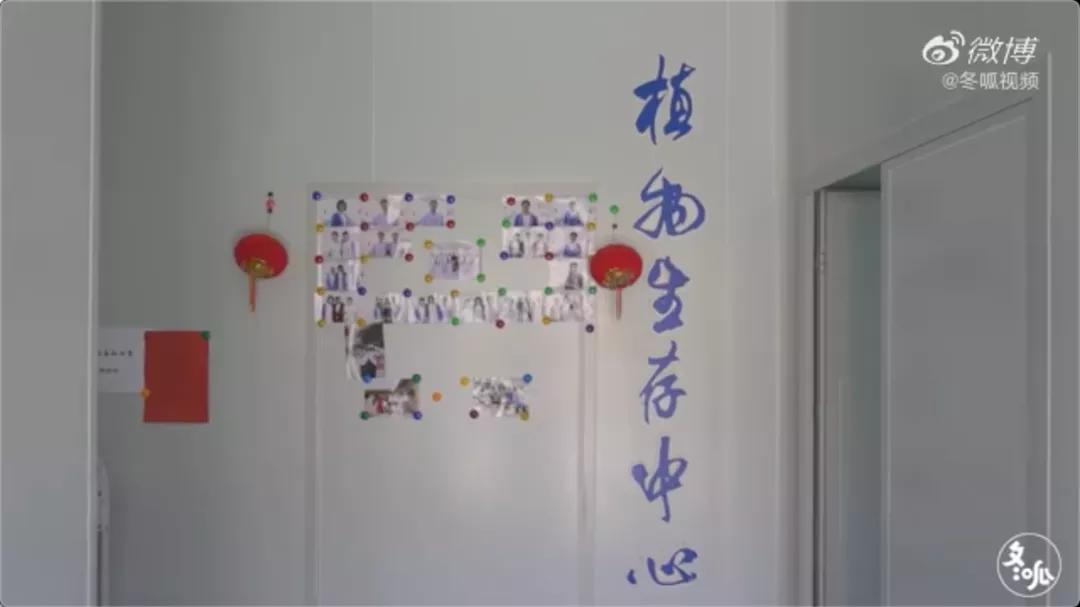 微博
@冬呱视频
植物生存中心
冬呱